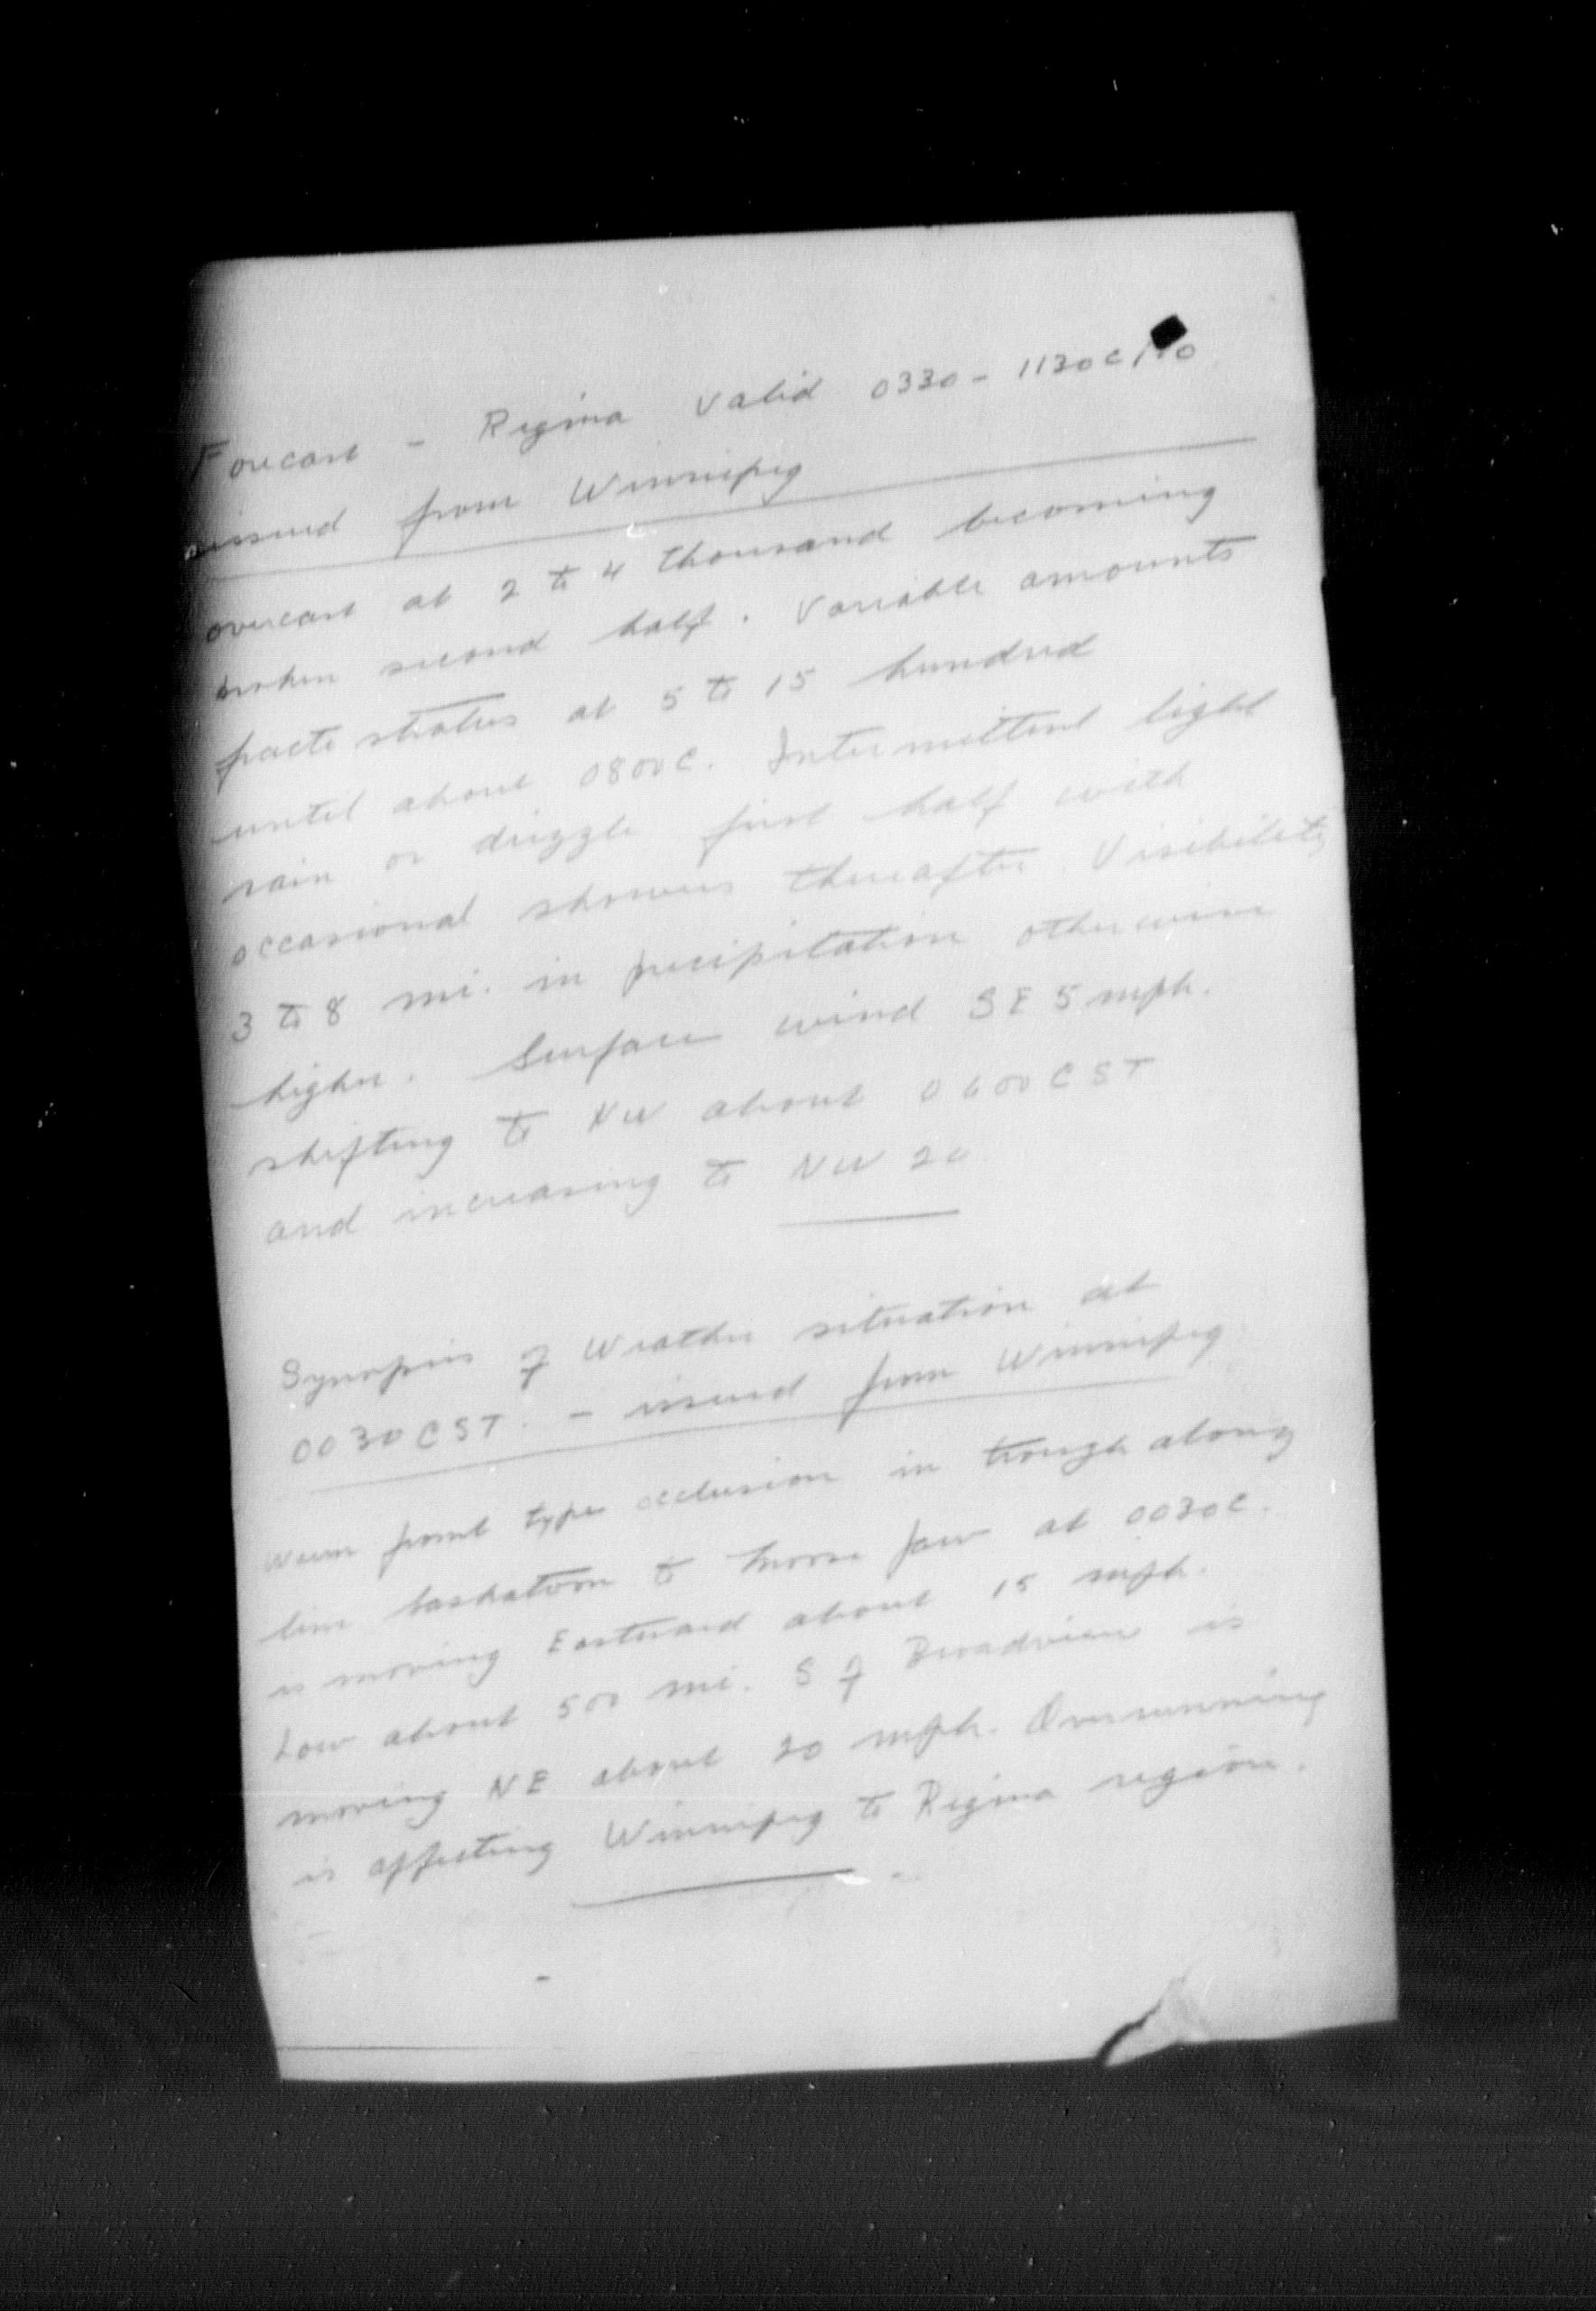 Forecast - Regina Valid 0330 - 1130C
issued from Winnipeg
overcast at 2 to 4 thousand becoming
broken second half. Variable amounts
fracto stratus at 5 to 15 hundred
until about 0800C. Intermittent light
rain or drizzle first half with
occasional showers thereafter. Visibility
3 to 8 mi. in precipitation otherwise
higher. Surface wind SE 5 mph.
shifting to NW about 0600 CST
and increasing to NW 20
Synopsis of Weather situation at
0030 CST. - issued from Winnipeg
Warm front type occlusion in trough along
line Saskatoon to Moose Jaw at 0030C.
is moving Eastward about 15 mph.
Low about 500 mi. S of Broadview is
moving NE about 20 mph. Overrunning
is affecting Winnipeg to Regina region.